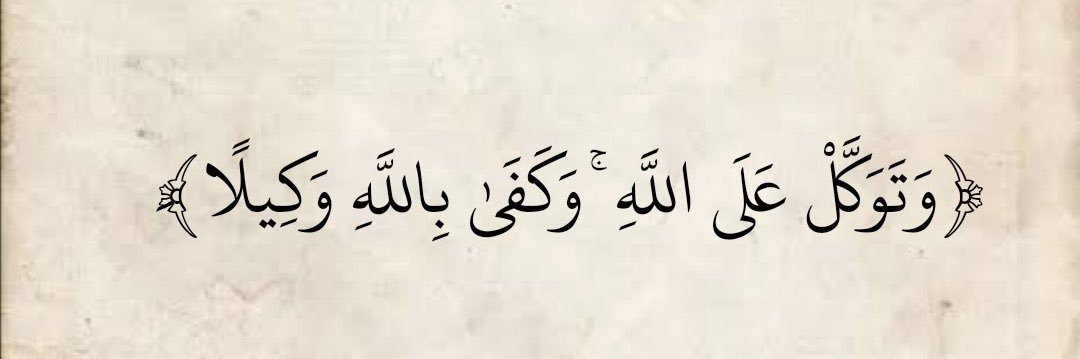 ﴿وَتَوَكَّلْ عَلَى اللَّهِ ۚ وَكَفَىٰ بِاللَّهِ وَكِيلًا﴾